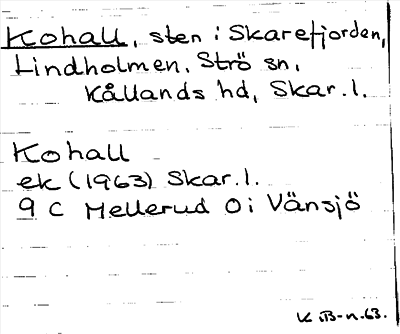 Kohall, sten i Skarefjorden,
Lindholmen, Strö sn,
Kållands hd, Skar. l.
Kohall
ek (1963) Skar. l.
9 C Mellerud Ö i Vänsjö
K B-n. 63.